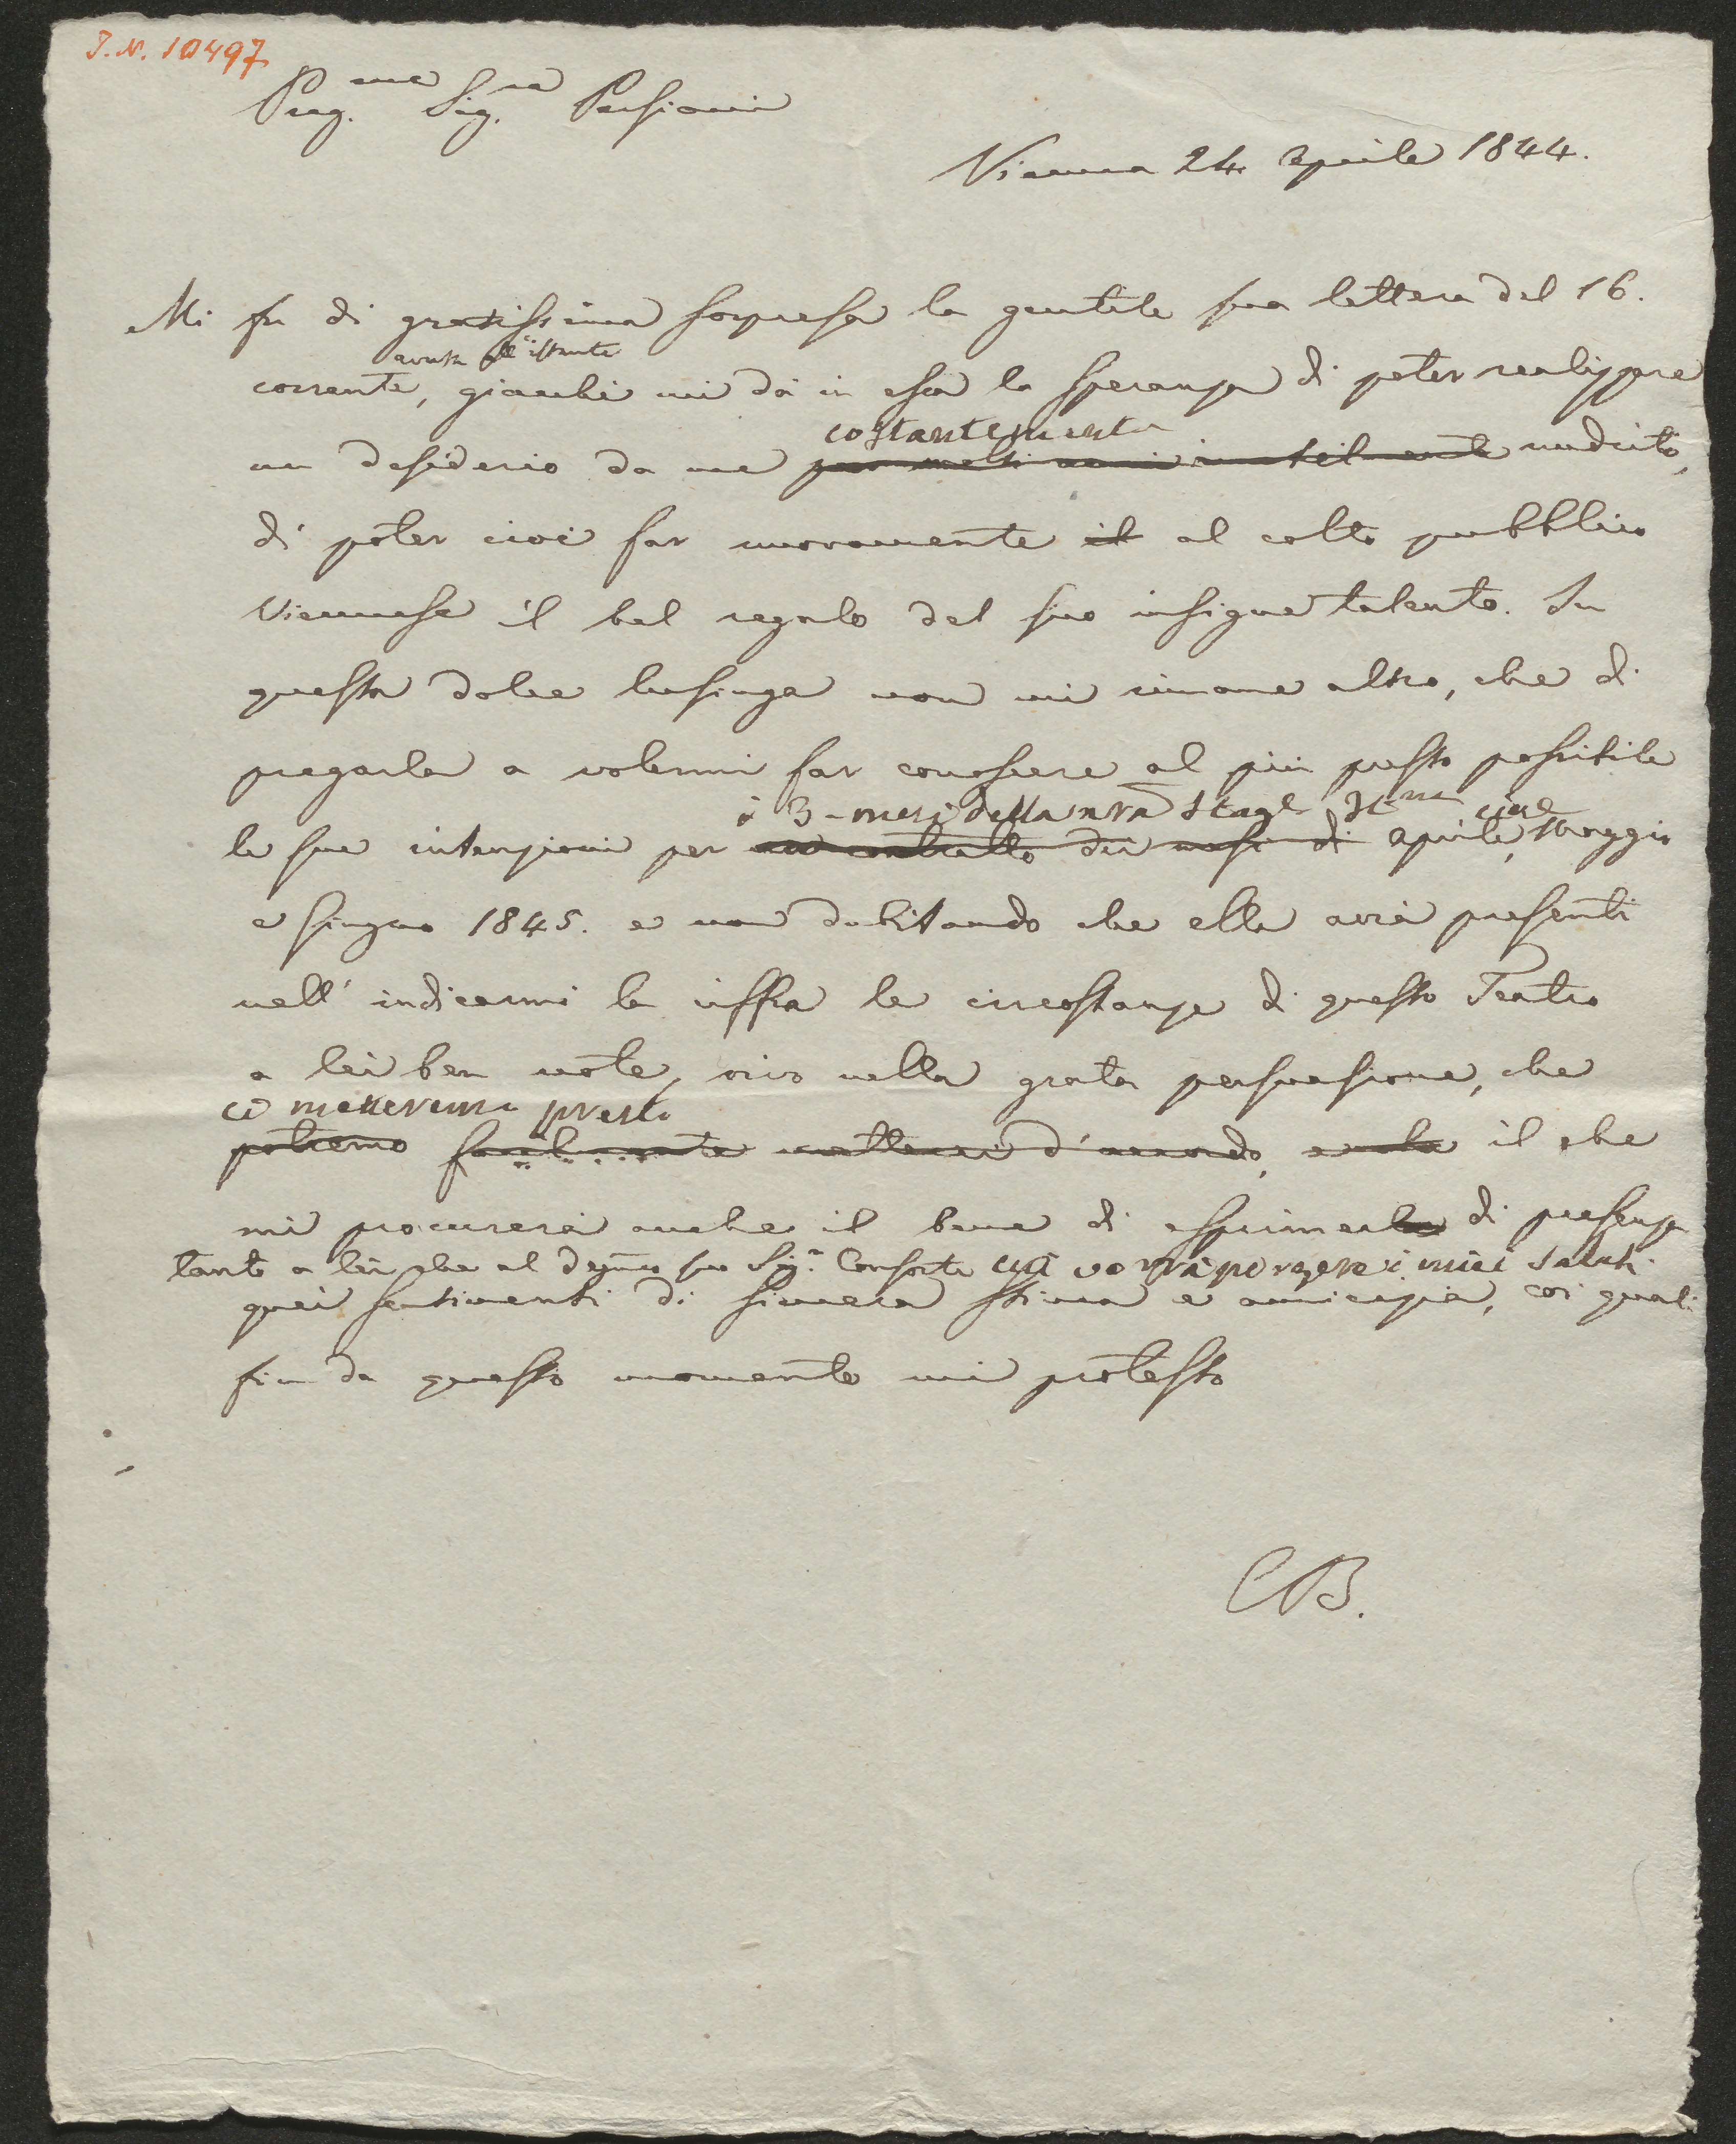 J. N. 10497
Preg.me Sig.ra Persiani
Vienna 24 aprile 1844.
Mi fu di gratissima sorpresa la gentile sua lettera del 16.
avuta all'istante
corrente, giacchè mi dà in essa la speranza di poter realizzare
costantemente
un desiderio da me per molti anni inutilmente nudrito,
di poter cioè far nuovamente il al colto pubblico
Viennese il bel regalo del suo insigne talento. In
questa dolce lusinga non mi rimane altro, che di
pregarla a volermi far conoscere al più presto possibile
i 3 mesi della nra Stage Itna cioè
le sue intenzioni per un contratto dei mesi di aprile, Maggio
e Giugno 1845. e non dubitando che ella avrà presenti
nell' indicarmi la ciffra le circostanze di questo Teatro
a lei ben note, vivo nella grata persuasione, che
ci metteremo presto
potremo facilmente metterci d'accordo, il che
mi procurerà anche il bene di esprimerle di presenza
tanto a lei che al degmo suo Sigr Consorte cui vorrà porgere i miei saluti
quei sentimenti di sincera stima e amicizia, coi quali
fin da questo momento mi protesto
CB.